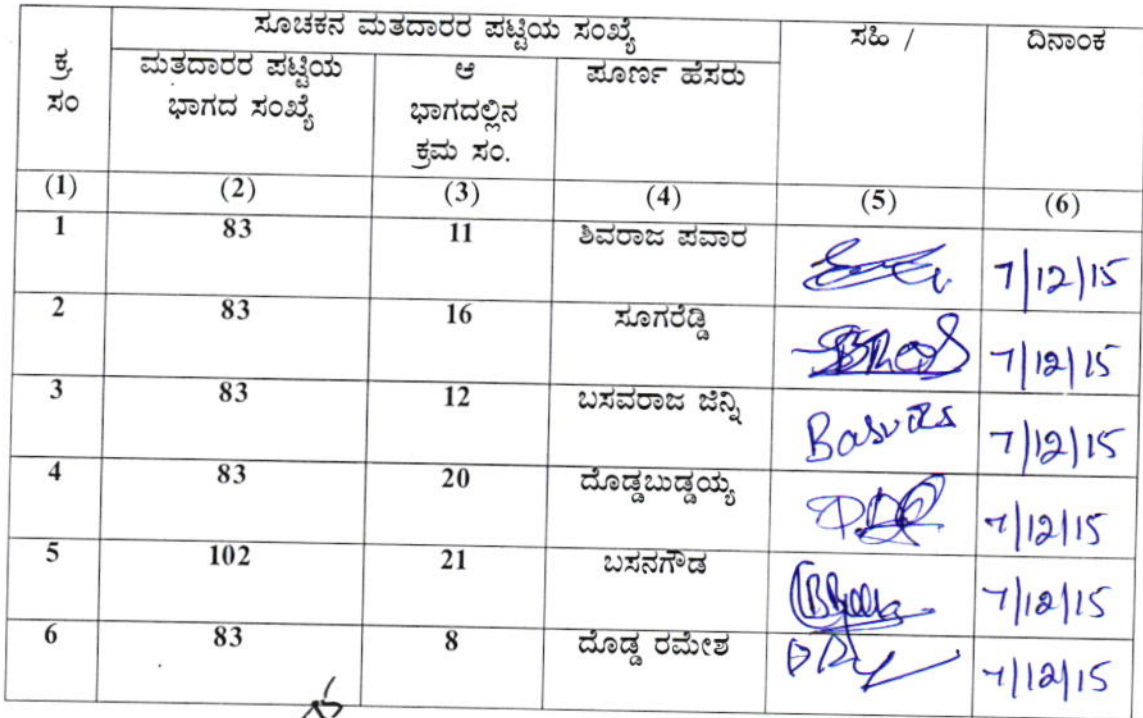 ಸೂಚಕನ ಮತದಾರರ ಪಟ್ಟಿಯ ಸಂಖ್ಯೆ ಸಹಿ / ದಿನಾಂಕ
ಕ್ರ. ಸಂ
ಮತದಾರರ ಪಟ್ಟಿಯ ಭಾಗದ ಸಂಖ್ಯೆ
ಆ ಭಾಗದಲ್ಲಿನ ಕ್ರಮ ಸಂ.
ಪೂರ್ಣ ಹೆಸರು
(1) (2) (3) (4) (5) (6)
1 83 11 ಶಿವರಾಜ ಪವಾರ 7/12/15
2 83 16 ಸೂಗರೆಡ್ಡಿ 7/12/15
3 83 12 ಬಸವರಾಜ ಜೆನ್ನಿ 7/12/15
4 83 20 ದೊಡ್ಡಬುಡ್ಡಯ್ಯ 7/12/15
5 102 21 ಬಸನಗೌಡ 7/12/15
6 83 8 ದೊಡ್ಡ ರಮೇಶ 7/12/15